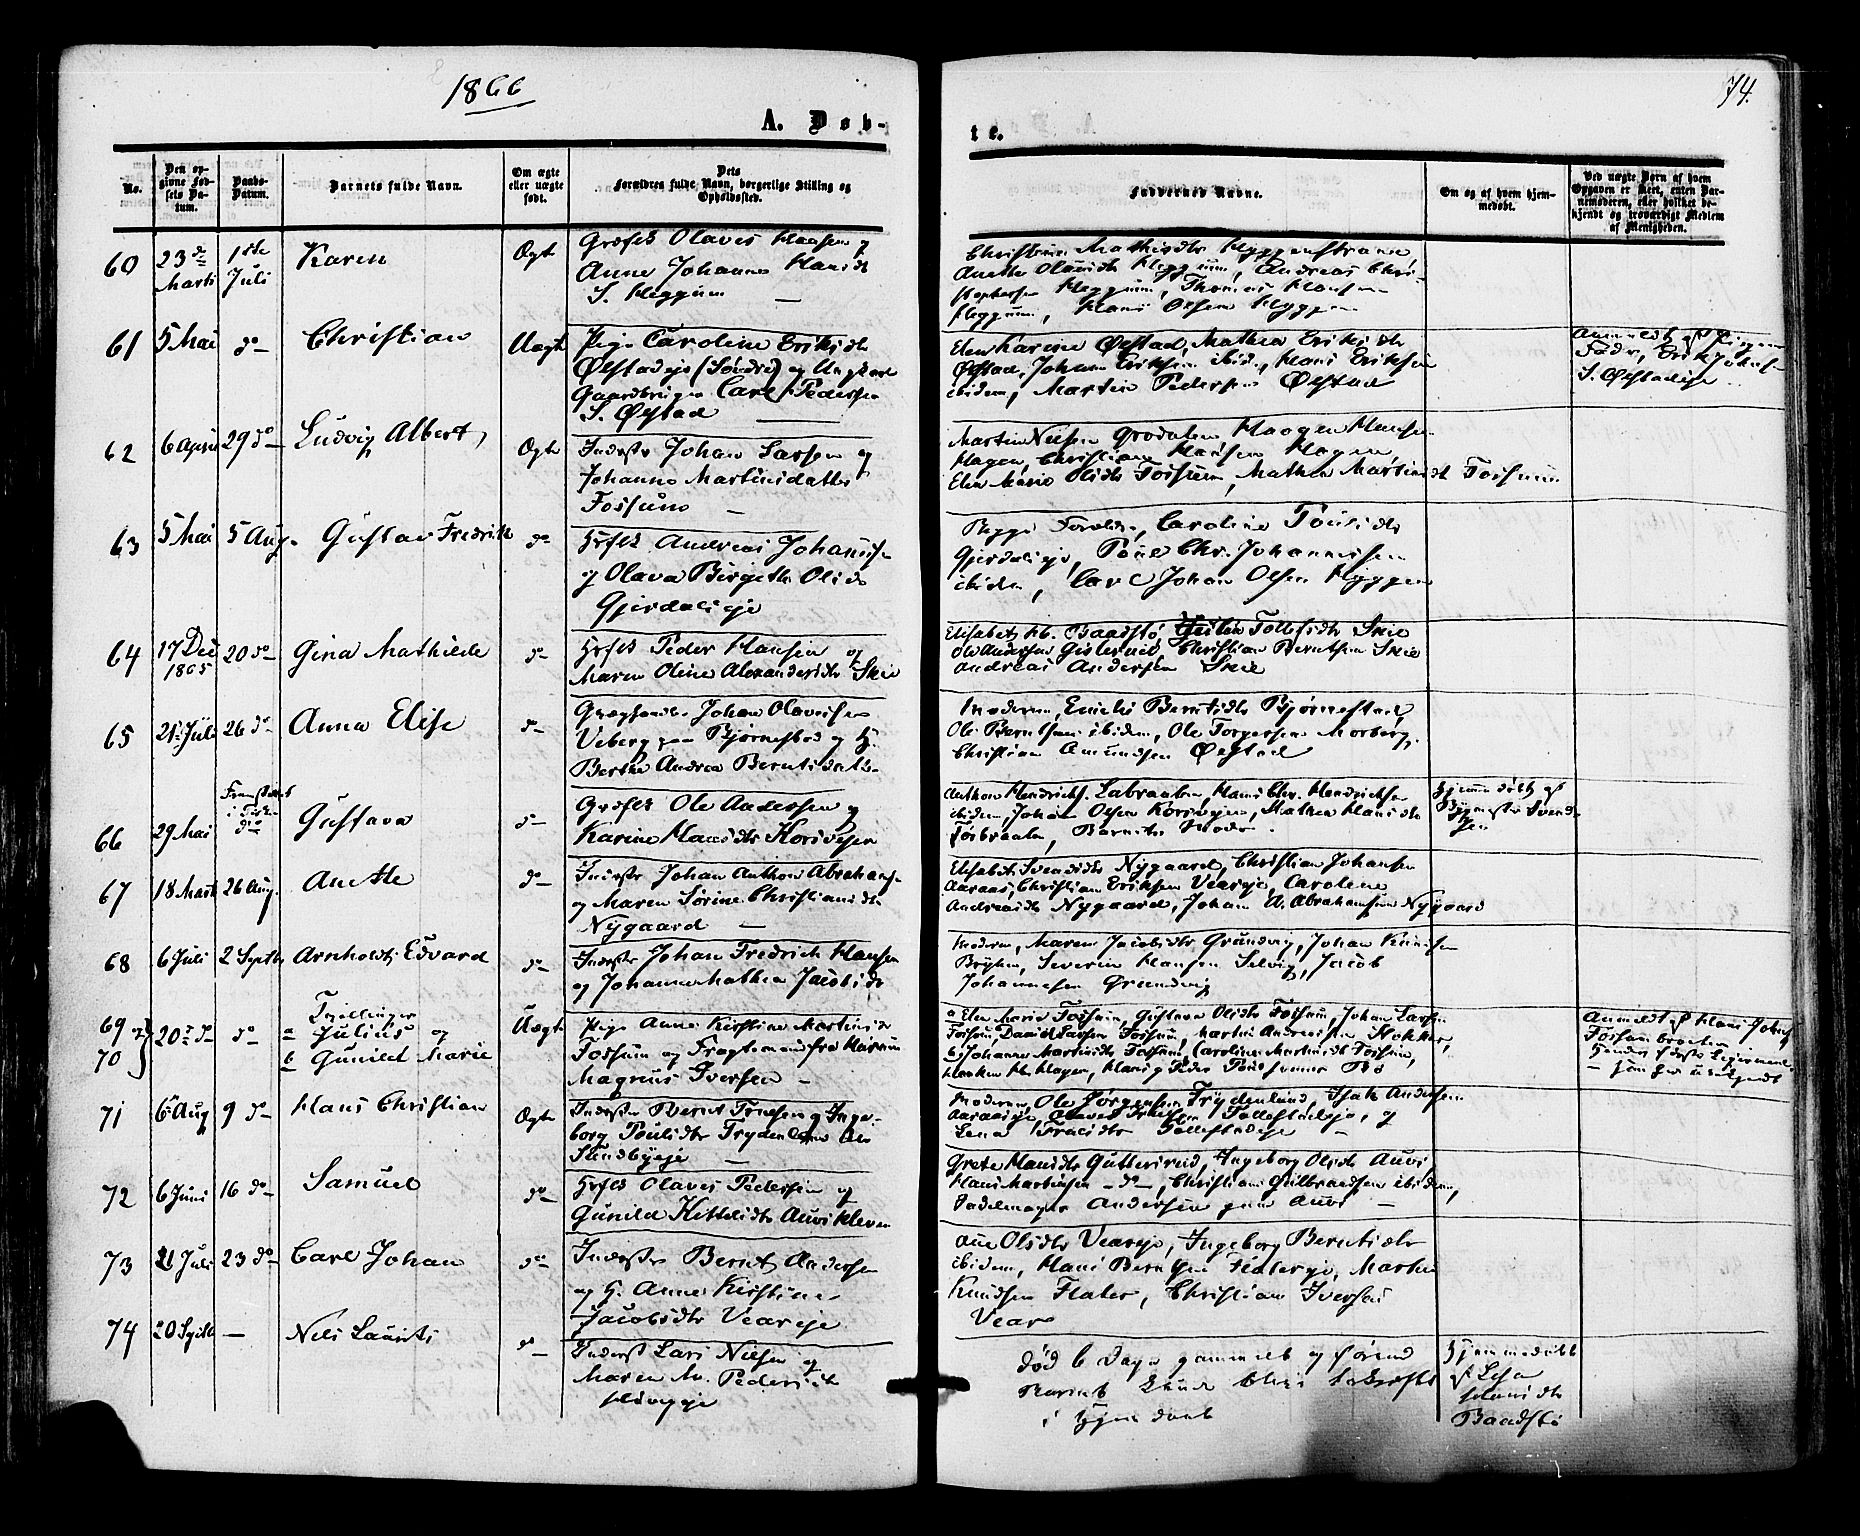 1866
74.
A. Døb-
te.
No.
Den op-
givne Fød-
sels Da-
tum.
Daabs-
Datum.
Barnets fulde Navn.
Om ægte
eller uægte
født.
Dets
Forældres fulde Navn, borgerlige Stilling og
Opholdssted.
Faddernes Navne.
Om og af hvem hjem-
medøbt.
Ved uægte Børn af hvem
Opgaven er skeet, enten Bar-
nemoderen, eller hvilket be-
kjendt og troværdigt Medlem
af Menigheden.
60 23 Marti 1ste Juli Karen Ægt
Olaves Hansen &
Anne Johannes Hansdr
S. Heggum
Christine Mathisdtr Hyggenstrand
Anette Olausdr Heggum, Andreas Chri-
stophersen Heggum, Thomas Hansen
Heggum, Hans Olsen Hyggen
61 5 Mai do Christian Uægt
Pige Caroline Eriksdtr
Øfstadeje (Søndre) og Ungkarl
Gaardbruger Carl Pedersen
S. Øfstad
Elen Karine Øfstad, Mathea Eriksdtr
Øfstad, Johan Eriksen ibidem, Hans Eriksen
ibidem, Martin Pedersen Øfstad
Anmeldt af Pigens
Fader, Erik
S. Øfstadeje
62 6 April 29 do Ludvig Albert Ægte
Inderst Johan Larsen og
Johanne Martinsdatter
Fossum
Martin Nielsen Grodalen Haagen Hansen
Hagen, Christian Hansen Hagen,
Elen Marie Olsdtr Fossum, Mathea Martinsdt Fossum
63 5 Mai 5 Aug. Gustav Fredrik do
Andreas Johannsen
og Olava Birgethe Olsdr
Gjerdalseje
Begge Forældre, Caroline Poulsdtr
Gjerdalseje, Poul Chr. Johannessen
ibidem, Carl Johan Olsen Hyggen
64 17 Dec 1865 20 do Gina Mathilde do
Peder Hansen og
Maren Oline Alexandersdtr Skie
Elisabeth H. Baadstø, Tollefsdtr Skie
Ole Andersen, Christian Berntsen Skie
Andreas Andersen Skie
65 21 Juli 26 do Anna Elise do
Johan Olavesen
Veberg paa Bjørnestad og H.
Berthe Andrea Berntsdatter
Moderen, Emilie Berntsdtr Bjørnestad,
Ole Berntsen ibidem, Ole Torgersen Morberg,
Christian Amundsen Øfstad
66 29 Mai Fremstillet i Kirken do Gustava do
Ole Andersen og
Karine Hansdtr Korsvejen
Anthon Hendrichs. Labraaten, Hans Chr. Hendrichsen
ibidem, Johan Olsen Korsvejen, Mathea Hansdtr
Barnets Moder.
Hjemmedøbt af
Svend-
sen
67 18 Marti 26 Aug. Anette do
Inderst Johan Anthon Abrahams.
og Maren Sørine Christiansdtr
Nygaard
Elisabet Svendsdtr Nygaard, Christian Johansen
Aaraas, Christian Eriksen Vearsje, Caroline
Andreasdtr Nygaard, Johan A. Abrahamsen Nygaard
68 6 Juli 2 Septbr Arnholdt Edvard do
Inderst Johan Fredrich Hansen
og Johanne Mathea Jacobsdr
Moderen, Maren Jacobsdtr Grundvig, Johan Knudsen
Severin Hansen Selvig, Jacob
Johannesen Grundvig
69 & 70 20 do do
Tvillinger
a Julius og
b Gunild Marie
Uægte
Pige Anne Kirstine Martinsdr
Fossum og Fragtemand fra Hurum
Magnus Iversen
a Elen Marie Fossum, Gustava Olsdtr Fossum, Johan Larsen
Fossum, Daniel Larsen Fossum, Martin Andreassen Stokker,
b Johanne Martinsdtr Fossum, Caroline Martinsdt Fossum,
Haaken H. Hagen, Hans & Peder Poulsønner Bø
Anmeldt af Hans Johns.
Fossumbraaten
71 6 Aug 9 do Hans Christian Ægte
Inderst Bernt Truesen & Inge-
borg Poulsdtr Frydenlund
Sundbyeje
Moderen, Ole Jørgensen Frydenlund, Isak Andersen
Aaraaseje, Olaves Tollefstadeje, og
Lena Tollefstadeje
72 6 Juni 16 do Samuel do
Olaves Pedersen og
Gunild Kittelsdtr Auvikleven
Grete Hansdtr Guttersrud, Ingeborg Olsdtr Auvi
Hans Martinsen - do -, Christian Gulbrandsen ibidem,
Sadelmager Andersen paa Auvi
73 21 Juli 23 do Carl Johan do
Inderst Bernt Andersen
og H. Anne Kirstine
Jacobsdtr Vearsje
Ane Olsdtr Vearsje, Ingeborg Berntsdtr
ibidem, Hans Bern Flatersje, Marthe
Knudsen Flater, Christian Iversen
Vear
74 20 Septbr - Nils Laurits do
Inderst Lars Nielsen og
Maren M. Pedersdtr
død 6 Dage gammel og
i Hjemdaab
Hjemmedøbt
af
Hansdtr
Baadstø